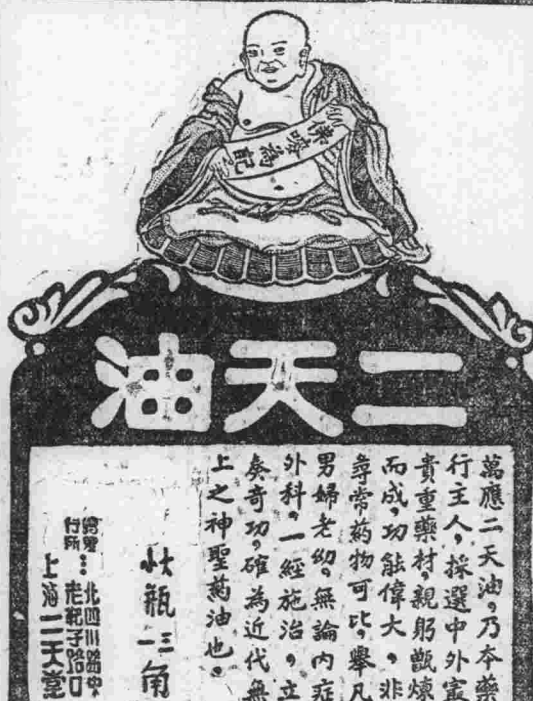 佛嘜為記
二天油
萬應二天油，乃本藥
行主人，採選中外最
貴重藥材，親躬甑煉
而成，功能偉大，非
尋常葯物可比，舉凡
男婦老幼，無論內症
外科，一經施治，立
奏奇功，確為近代無
上之神聖葯油也。
瓶三角
總發行所：北四川路中
老靶子路口
上海二天堂